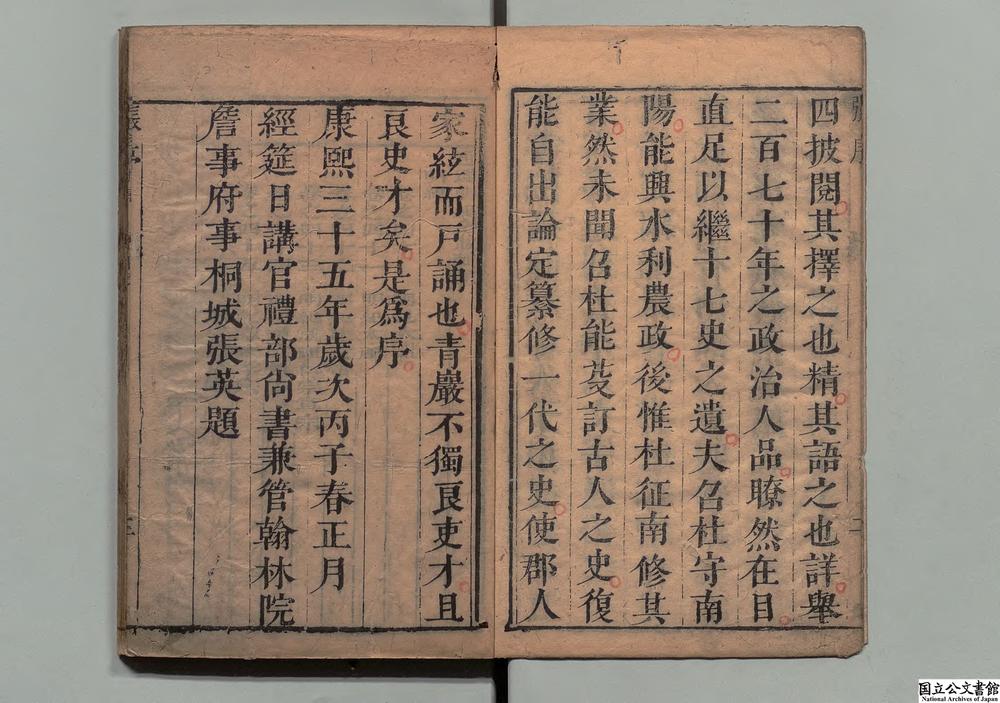 四披閱其擇之也精其語之也詳舉
二百七十年之政治人品瞭然在目
直足以繼十七史之遺夫召杜守南
陽能興水利農政後惟杜征南修其
業然未聞召杜能芟訂古人之史復
能自出論定纂修一代之史使郡人
家絃而戶誦也青巖不獨良吏才且
良史才矣是爲序
康熙三十五年歲次丙子春正月
經筵日講官禮部尙書兼管翰林院
詹事府事桐城張英題
国立公文書館
National Archives of Japan